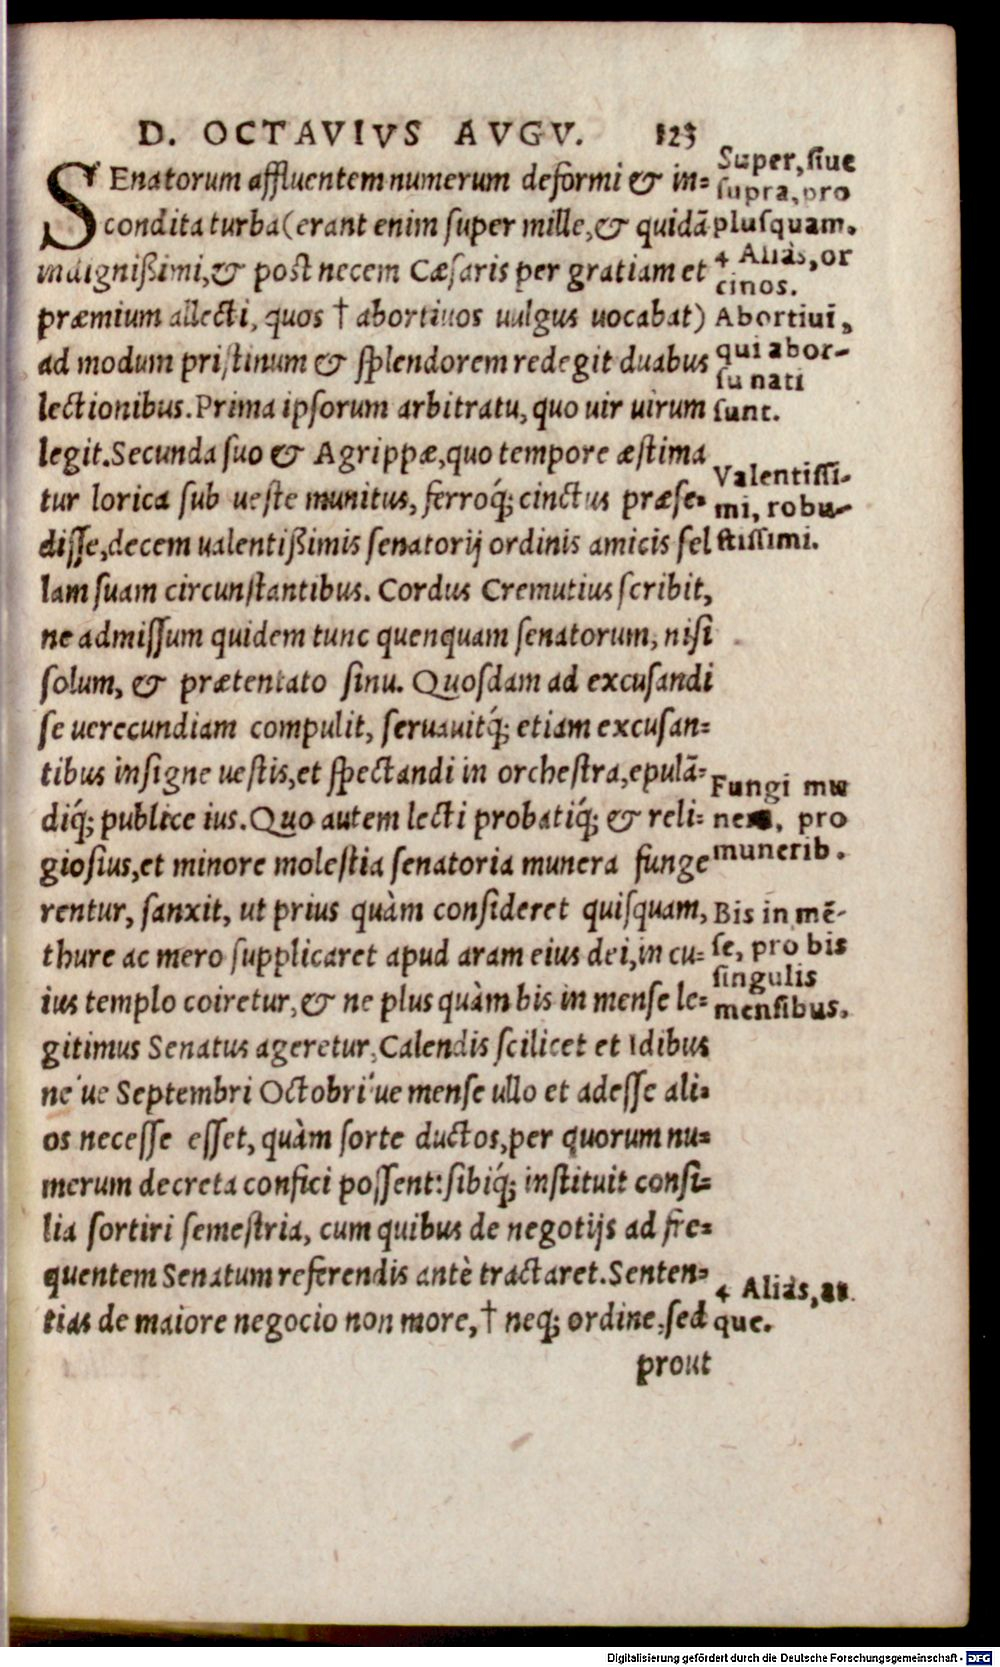 D. OCTAVIVS AVGV. 123
SEnatorum affluentem numerum deformi & in-
condita turba (erant enim super mille, & quidā
indignißimi, & post necem Cæsaris per gratiam et
præmium allecti, quos † abortiuos uulgus uocabat)
ad modum pristinum & splendorem redegit duabus
lectionibus. Prima ipsorum arbitratu, quo uir uirum
legit. Secunda suo & Agrippæ, quo tempore æstima
tur lorica sub ueste munitus, ferroq́; cinctus præse-
disse, decem ualentißimis senatorij ordinis amicis sel
lam suam circunstantibus. Cordus Cremutius scribit,
ne admissum quidem tunc quenquam senatorum, nisi
solum, & prætentato sinu. Quosdam ad excusandi
se uerecundiam compulit, seruauitq́; etiam excusan-
tibus insigne uestis, et spectandi in orchestra, epulā-
diq́; publice ius. Quo autem lecti probatiq́; & reli-
giosius, et minore molestia senatoria munera funge
rentur, sanxit, ut prius quàm consideret quisquam,
thure ac mero supplicaret apud aram eius dei, in cu-
ius templo coiretur, & ne plus quàm bis in mense le-
gitimus Senatus ageretur, Calendis scilicet et Idibus
ne´ue Septembri Octobri´ue mense ullo et adesse ali-
os necesse esset, quàm sorte ductos, per quorum nu-
merum decreta confici possent: sibiq́; instituit consi-
lia sortiri semestria, cum quibus de negotijs ad fre-
quentem Senatum referendis antè tractaret. Senten-
tias de maiore negocio non more, † neq; ordine, sed
prout
Super, siue
supra, pro
plusquam.
4 Aliàs, or
cinos.
Abortiui,
qui abor-
su nati
sunt.
Valentissi-
mi, robu-
stissimi.
Fungi mu
nera, pro
munerib.
Bis in mē-
se, pro bis
singulis
mensibus.
4 Aliàs, at
que.
Digitalisierung gefördert durch die Deutsche Forschungsgemeinschaft - DFG